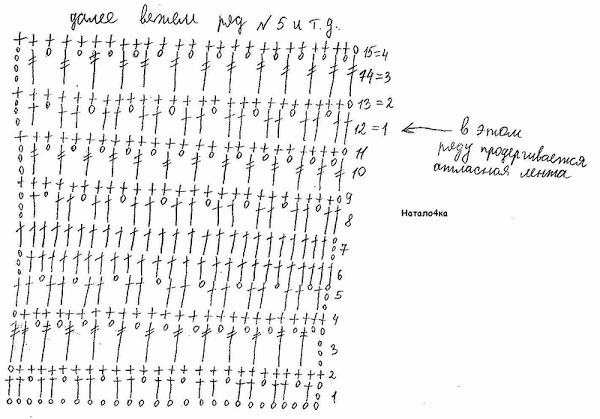 далее вяжем ряд № 5 и т.д.
15=4
14=3
13=2
12=1
в этом
ряду продергивается
атласная лента
11
10
9
Натало4ка
8
7
6
5
4
3
2
1